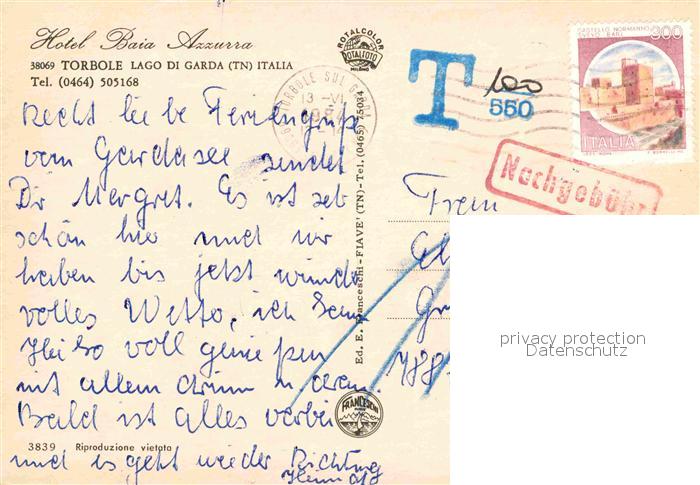 Hotel Baia Azzurra
38069 TORBOLE LAGO DI GARDA (TN) ITALIA
Tel. (0464) 505168
Recht liebe Feriengrüße
vom Gardasee sendet
Dir Margret. Es ist seh
schön hier und wir
haben bis jetzt wunder
volles Wetter, ich kann
voll genießen
mit allem drum u dran.
Bald ist alles vorbei
und es geht wieder Richtung
Heimat
3839 Riproduzione vietata
ROTALCOLOR
ROTALFOTO
MILANO
TORBOLE SUL GARDA
13 -VI
Ed. E. Franceschi - FIAVE' (TN) - Tel. (0465) 75034
FRANCESCHI
T 100
550
CASTELLO NORMANNO
SVEVO BARI
300
ITALIA
Nachgebühr
Frau
788
privacy protection
Datenschutz